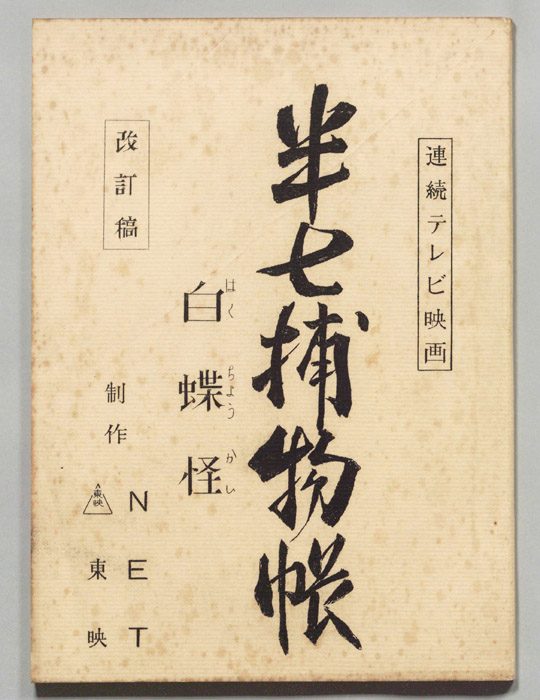 連続テレビ映画
半七捕物帳
白蝶怪
はくちょうかい
改訂稿
制作
NET
東映
東映